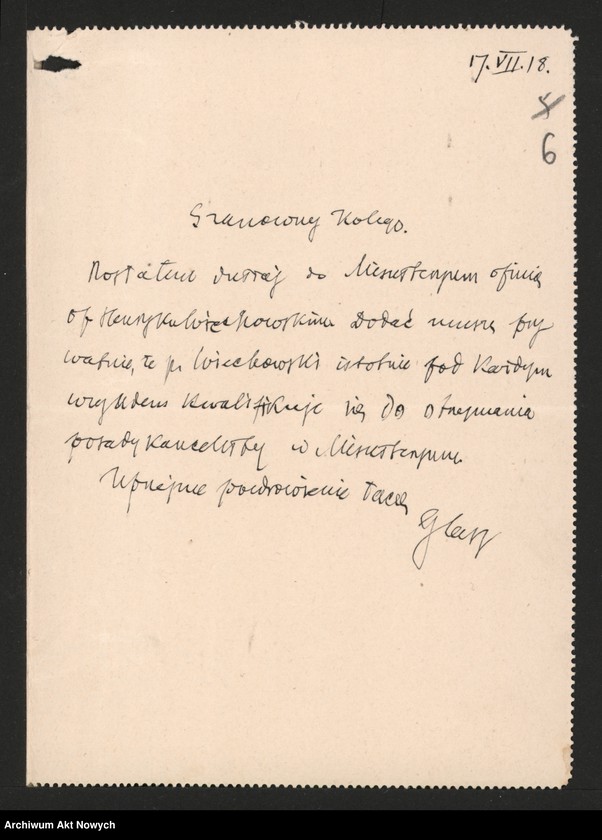 17.VII.18.
6
Szanowny Kolego.
Posłałem dzisiaj do Ministerjum opinię
o p. Henryku Więckowskim Dodać muszę pry
watnie, że p. Więckowski istotnie pod każdym
względem kwalifikuje się do otrzymania
posady w Ministerjum.
Uprzejme pozdrowienie łączę
Archiwum Akt Nowych